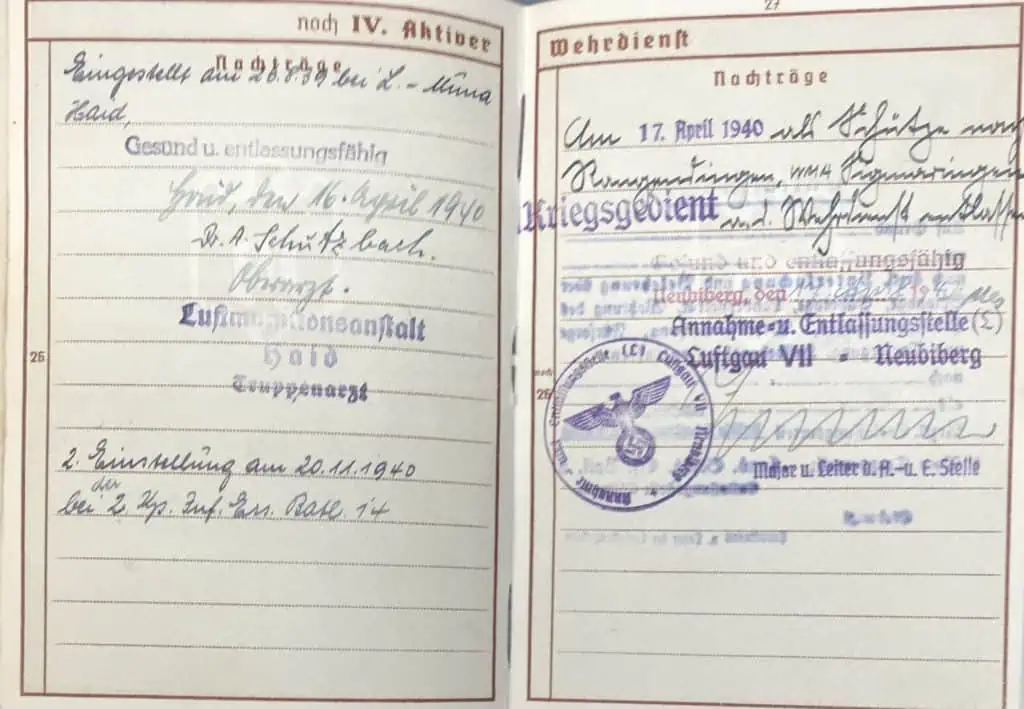 noch IV. Aktiver
Nachträge
Eingestellt am 26.8.39 bei L.-Muna
Haid,
Gesund u. entlassungsfähig
Haid, den 16. April 1940
Dr. A. Schützbach.
Oberarzt.
Luftmunitionsanstalt
Haid
Truppenarzt
2. Einstellung am 20.11.1940
bei der 2. Kp. Inf. Ers. Batl. 14
26
27
Wehrdienst
Nachträge
Am 17. April 1940 als Schütze nach
Rangendingen, Sigmaringen
Kriegsgedient
a.d. Wehrdienst entlassen
Gesund und entlassungsfähig
Neubiberg, den
Annahme-u. Entlassungsstelle (L)
Luftgau VII - Neubiberg
Major u. Leiter d. A.-u. E. Stelle
noch
26
Annahme- und Entlassungsstelle (L) Luftgau VII Neubiberg